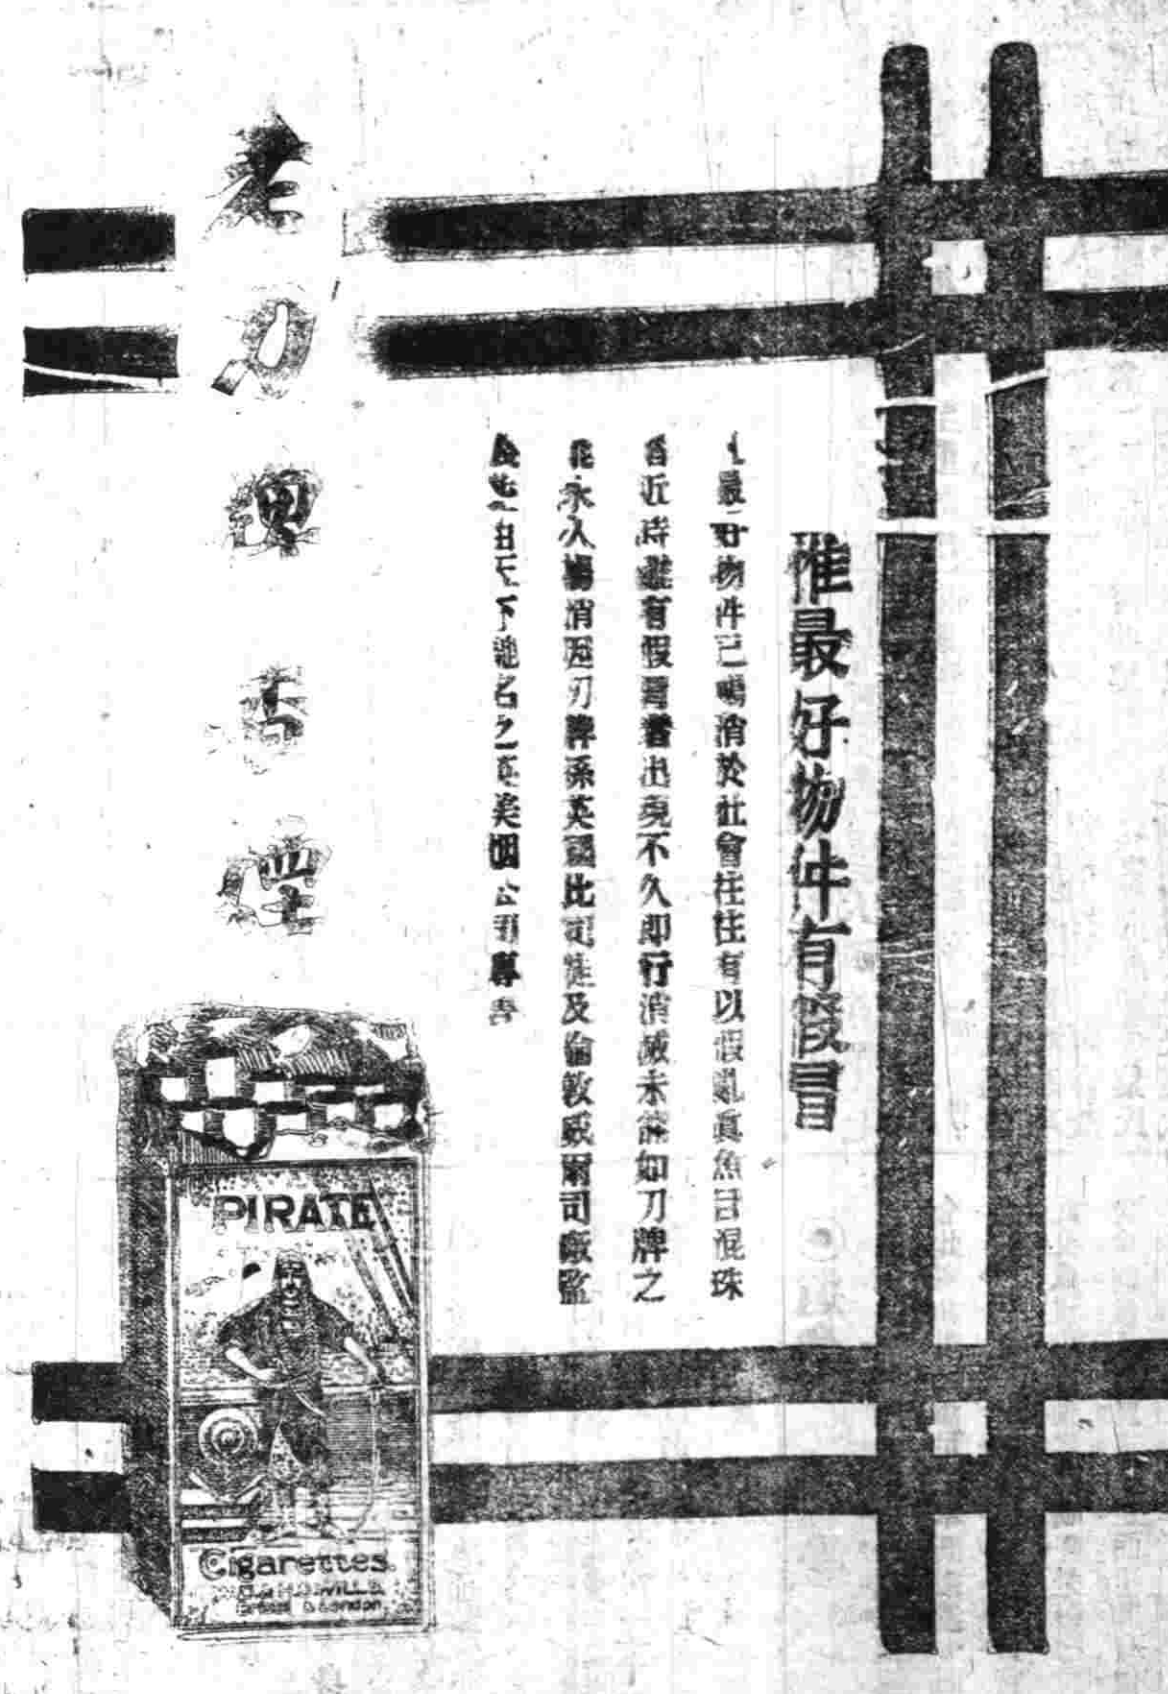 惟最好物件有假冒
凡最好物件已暢消於社會往往有以假亂眞魚目混珠
者近時雖有假冒者出現不久即行消滅未能如刀牌之
能永久暢消因刀牌係英國比司德及倫敦威爾司廠監
製由天下馳名之英美烟公司專售
老刀牌香煙
PIRATE
Cigarettes.
W.D.& H.O.WILLS.
Bristol & London.